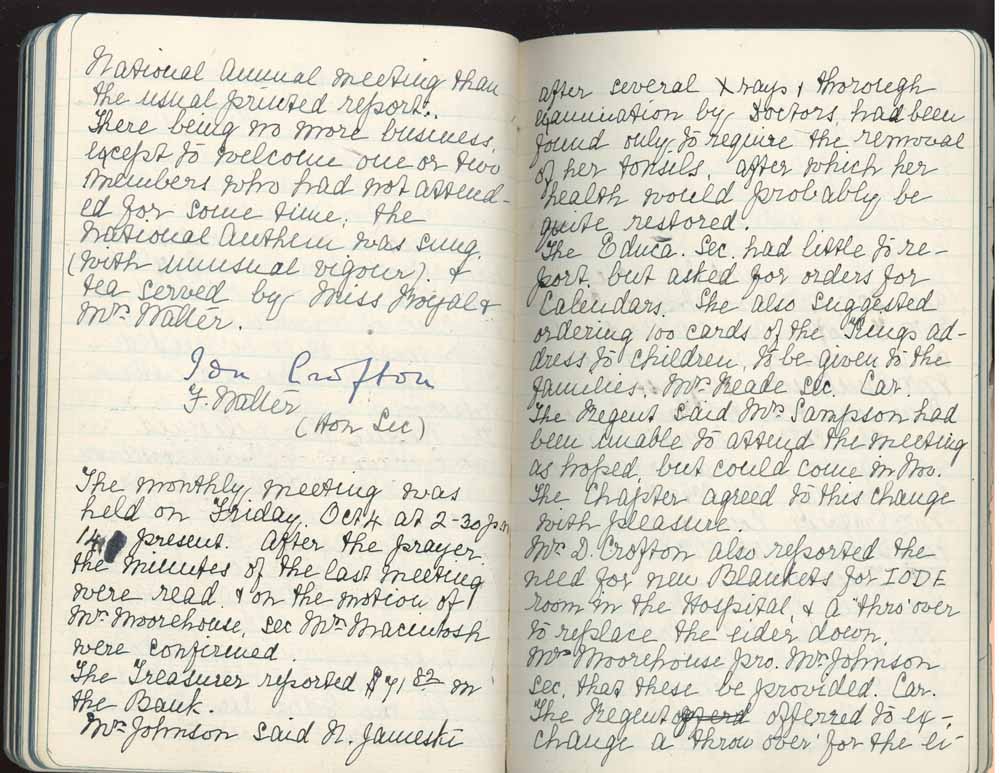 National Annual meeting than
the usual printed report.
There being no more business,
except to welcome one or two
members who had not attend-
ed for some time, the
National Anthem was sung.
(with unusual vigour). &
tea served by Miss Royal &
Mrs Walter.
Ion Crofton
F. Walter
(Hon Sec)
The monthly meeting was
held on Friday, Oct 4 at 2-30 p.m
14 present. After the prayer
the minutes of the last meeting
were read & on the motion of
Mrs Moorehouse, sec Mrs Macintosh
were confirmed.
The Treasurer reported $71 82 in
the Bank.
Mrs Johnson said N. Jameski
after several X rays & thorough
examination by Doctors, had been
found only to require the removal
of her tonsils, after which her
health would probably be
quite restored.
The Educa. Sec. had little to re-
port, but asked for orders for
Calendars. She also suggested
ordering 100 cards of the Kings ad-
dress to children, to be given to the
families. Mrs Reade sec. Car.
The Regent said Mrs Sampson had
been unable to attend the meeting
as hoped, but could come in Nov.
The Chapter agreed to this change
with pleasure.
Mrs D. Crofton also reported the
need for new Blankets for IODE
room in the Hospital, & a 'thro' over
to replace the eider down.
Mrs Moorehouse pro. Mrs Johnson
sec, that these be provided. Car.
The Regent offerred to ex-
change a 'throw over' for the ei-